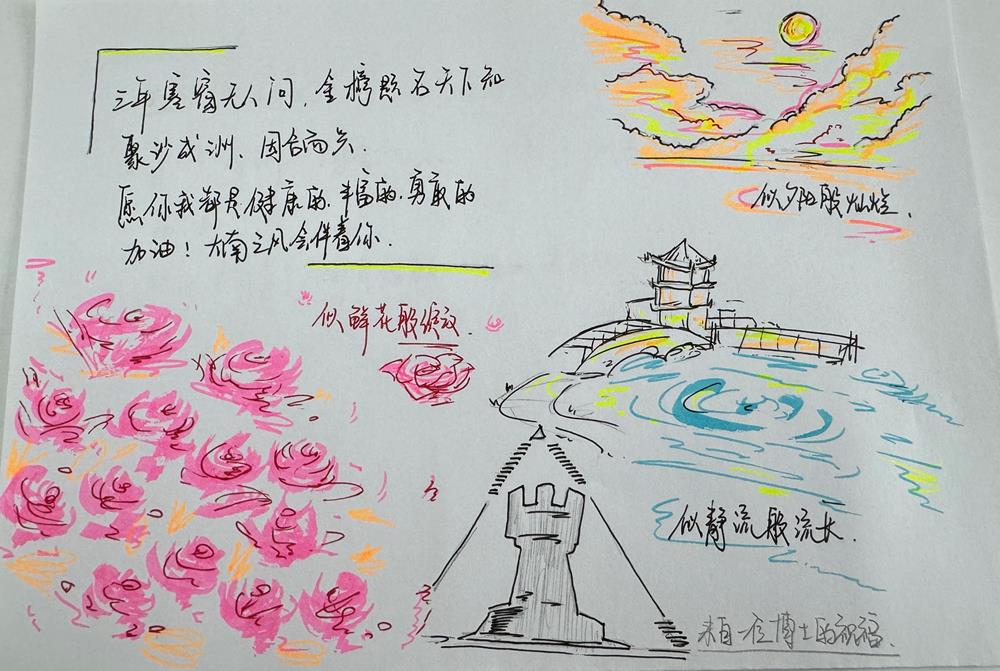 三年寒窗无人问,金榜题名天下知
聚沙成洲、因合而兴.
愿你我都是健康的.丰富的.勇敢的
加油!大南之风会伴着你.
似夕阳般灿烂.
似鲜花般绽放.
似静流般流长.
来自一位博士的祝福.